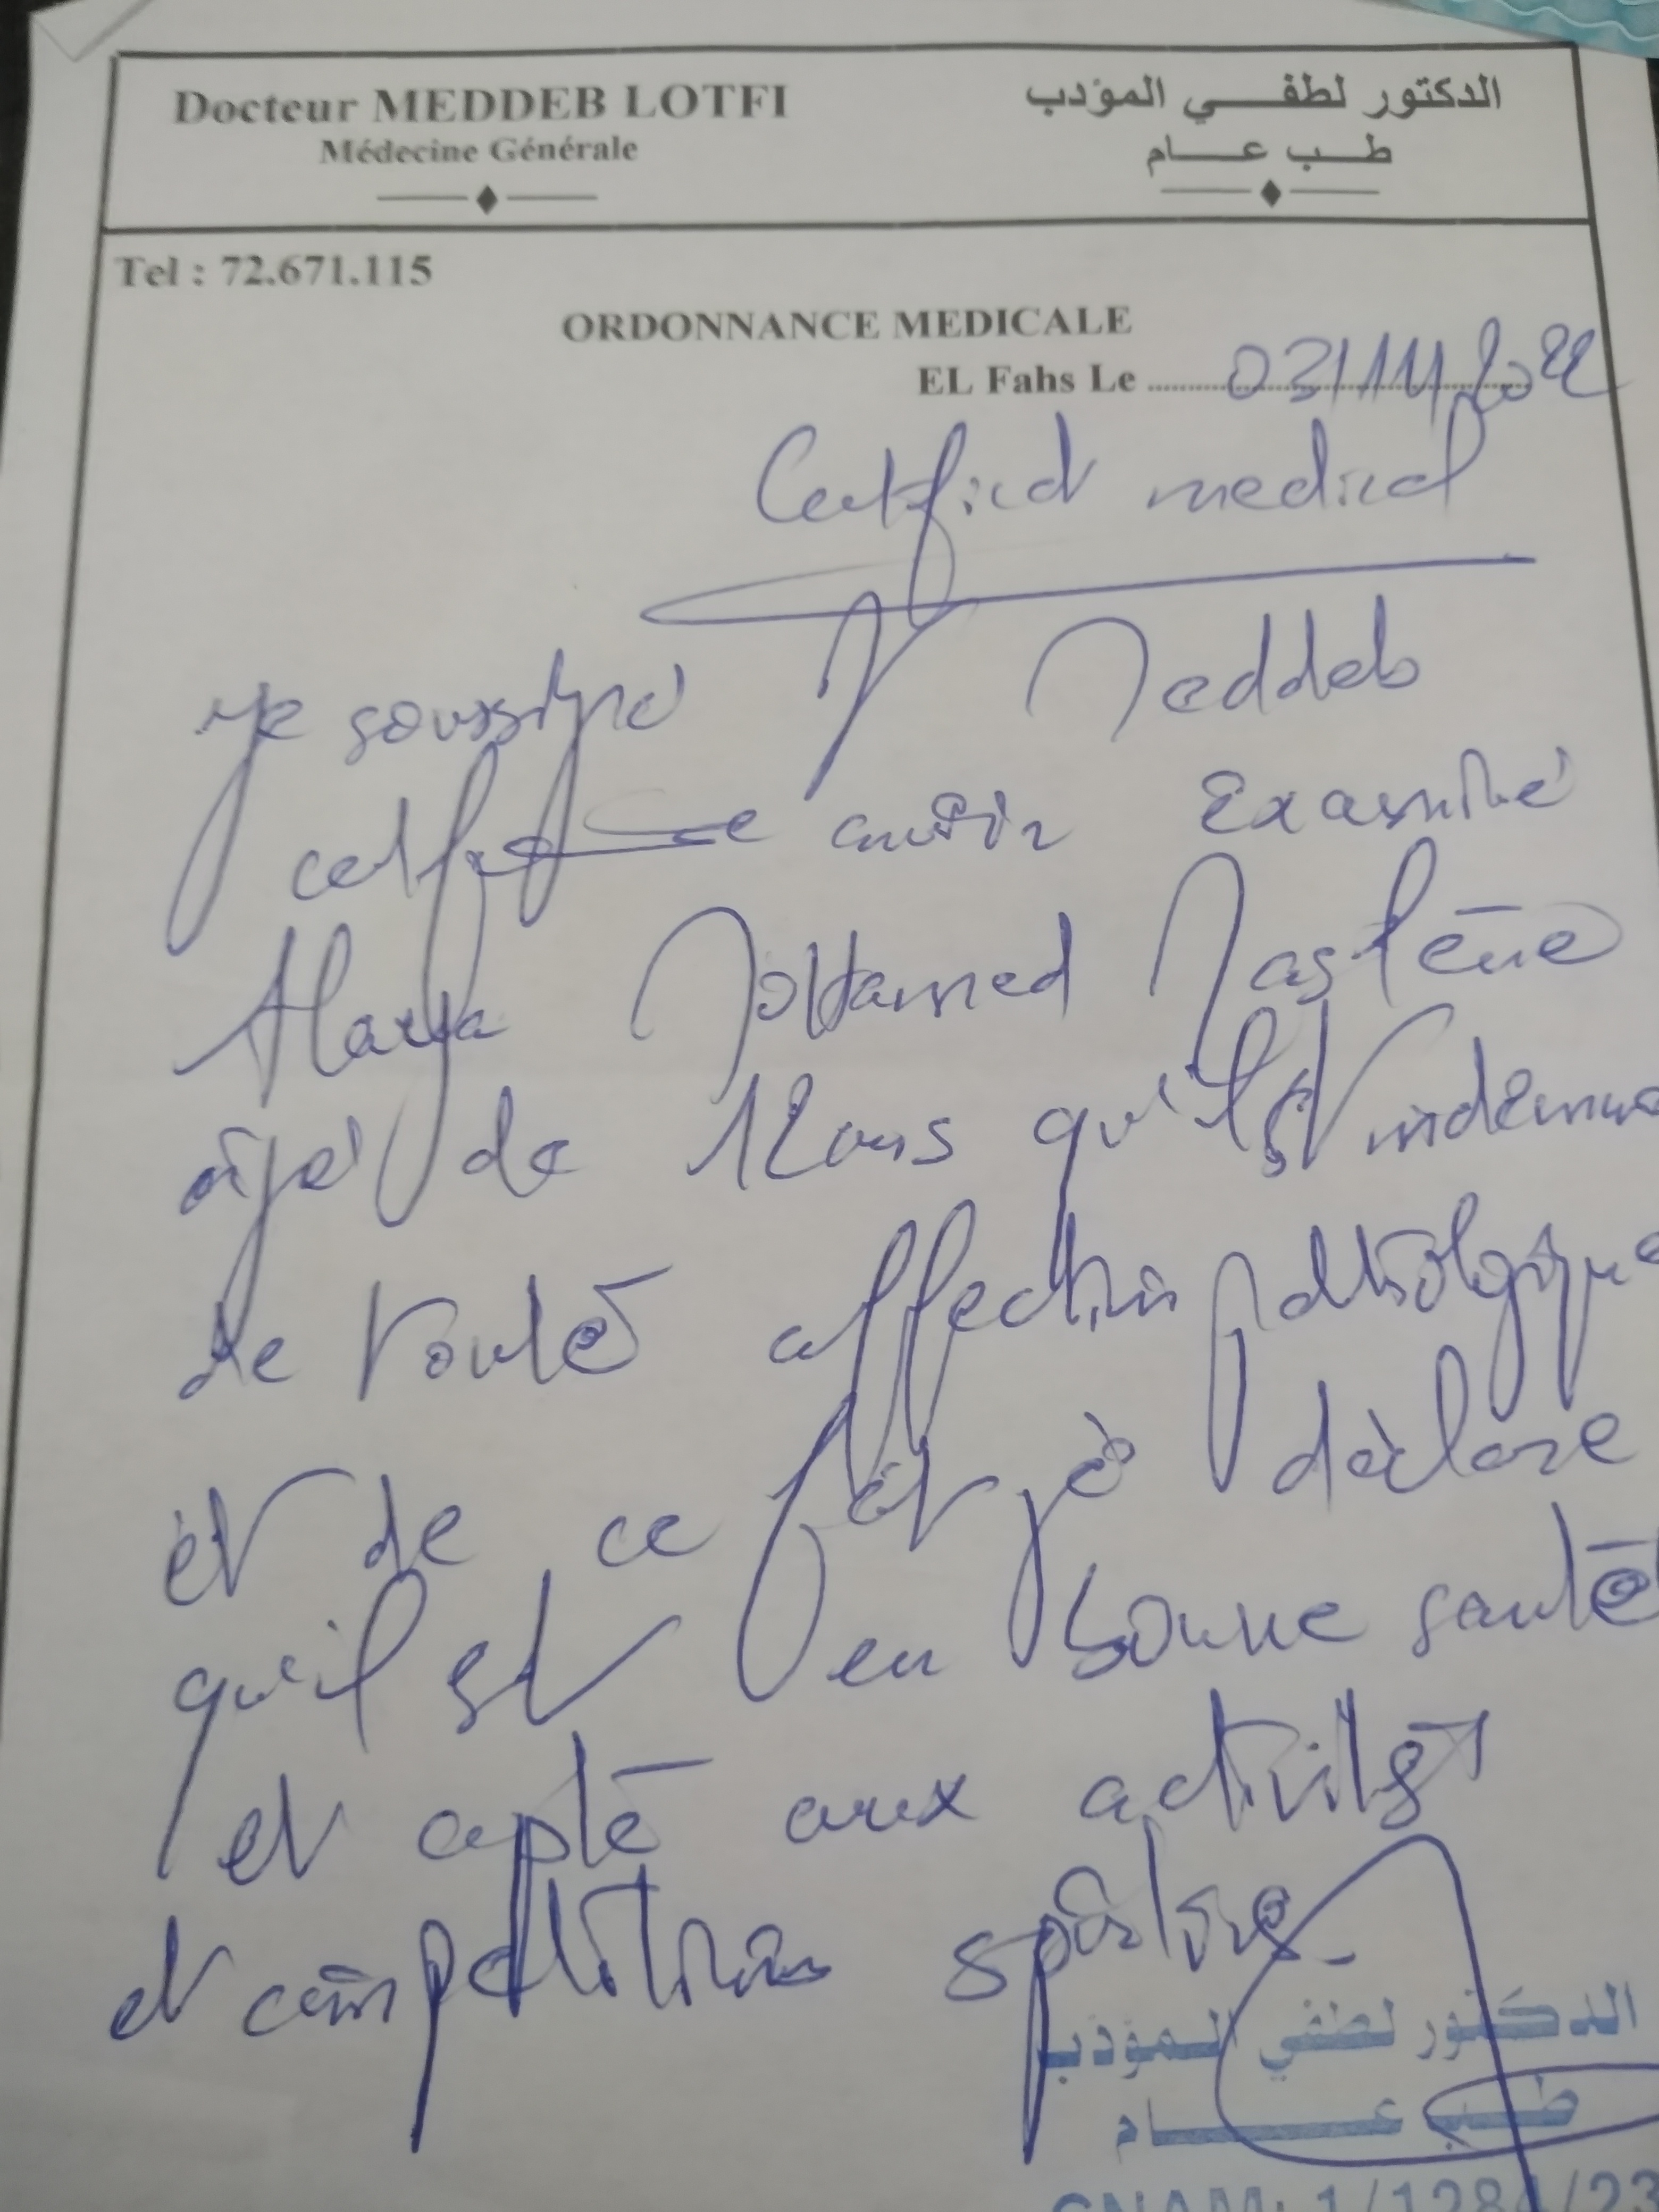 Docteur MEDDEB LOTFI
Médecine Générale
الدكتور لطفي المؤدب
طب عام
Tel : 72.671.115
ORDONNANCE MEDICALE
EL Fahs Le 03/11/2022
Certificat medical
je soussigné Dr Meddeb
certifie avoir examiné
Mohamed
âgé de 12 ans qu'il est indemne
de toute affection pathologique
et de ce fait je déclare
qu'il est en bonne santé
et apte aux activités
et compétition sportive
الدكتور لطفي المؤدب
طب عام
CNAM: 1/1284/23